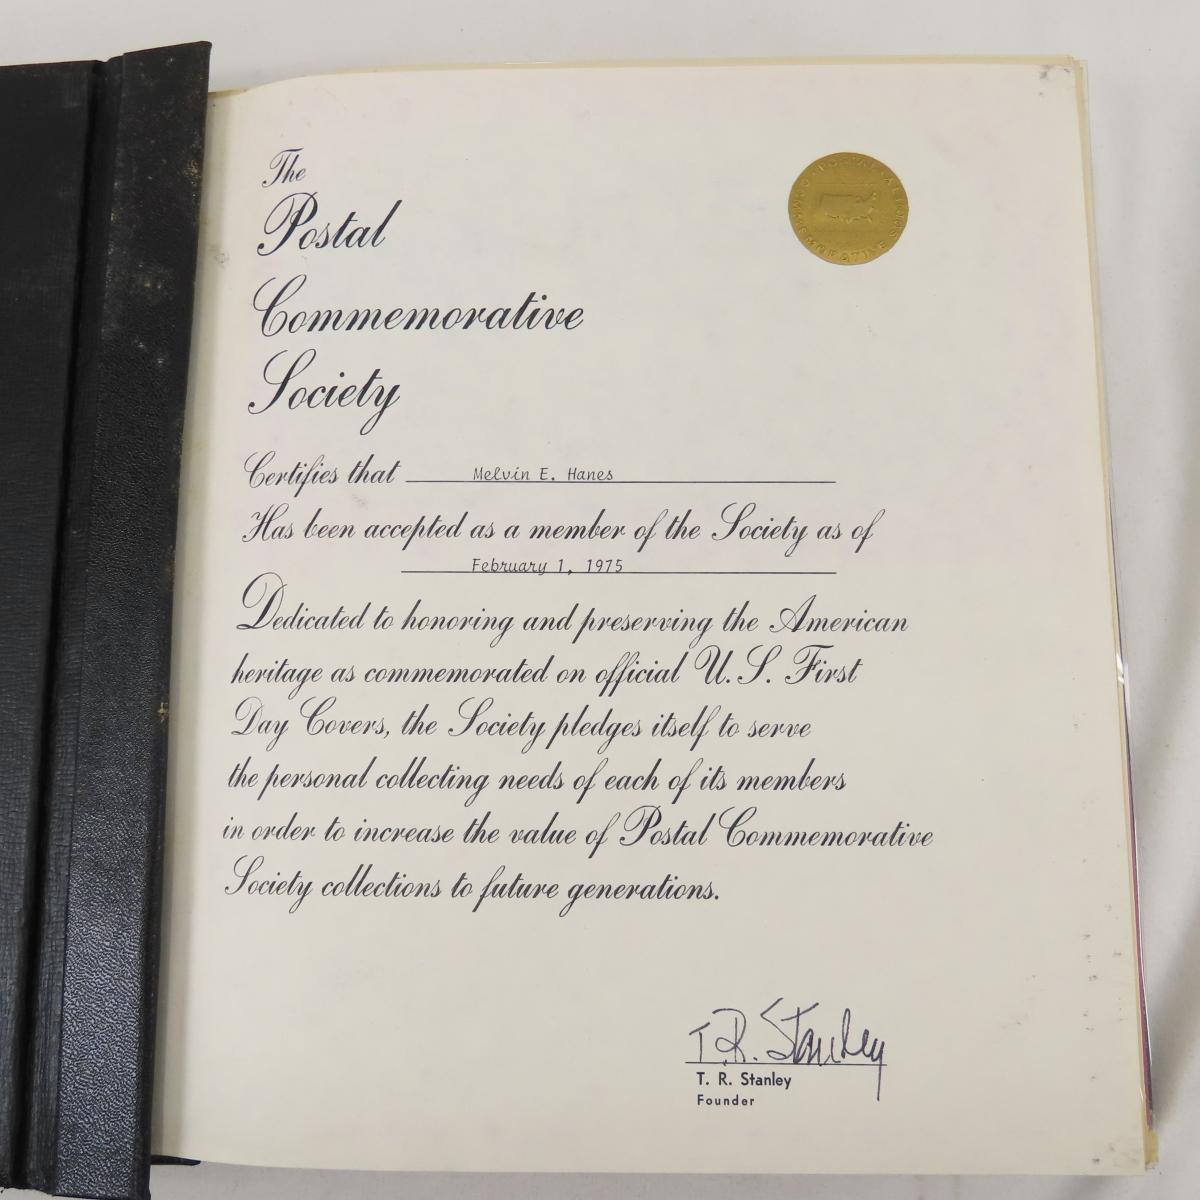 The
Postal
Commemorative
Society
Certifies that Melvin E. Hanes
Has been accepted as a member of the Society as of
February 1, 1975
Dedicated to honoring and preserving the American
heritage as commemorated on official U. S. First
Day Covers, the Society pledges itself to serve
the personal collecting needs of each of its members
in order to increase the value of Postal Commemorative
Society collections to future generations.
T. R. Stanley
T. R. Stanley
Founder